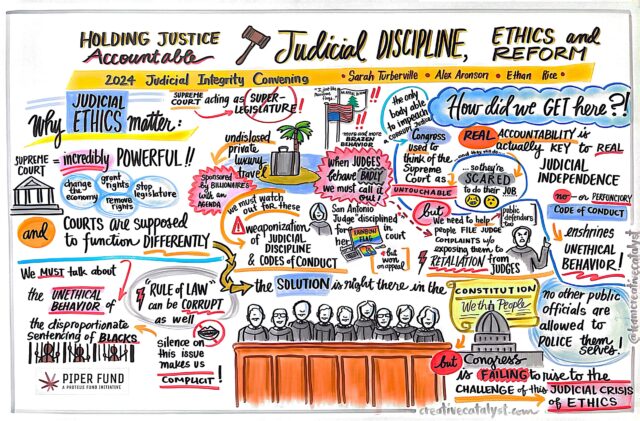 HOLDING JUSTICE
Accountable
Judicial DISCIPLINE,
ETHICS and
REFORM
2024 Judicial Integrity Convening
• Sarah Turberville • Alex Aronson • Ethan Rice •
Why JUDICIAL
ETHICS matter:
SUPREME
COURT acting as SUPER-
LEGISLATURE!
SUPREME
COURT = incredibly POWERFUL!!
change
the
economy
grant
rights
remove
rights
stop
legislature
and COURTS are supposed
to function DIFFERENTLY
undisclosed
private
luxury
travel
Sponsored
by BILLIONAIRES
with an
AGENDA
more and more
BRAZEN
BEHAVIOR
when JUDGES
behave BADLY
we must
call it out!
we must watch
out for these
weaponization
of JUDICIAL
DISCIPLINE
& CODES of CONDUCT
San Antonio
Judge disciplined
for
her
RAINBOW
FLAG
in
court
but
won
on appeal
the only
body able
to impeach
a
Congress
used to
think of the
Supreme
Court as
UNTOUCHABLE
so they're
SCARED
to do their JOB
but we need to help
people FILE JUDGE
COMPLAINTS w/o
exposing them to
RETALIATION from
JUDGES
public
defenders
too
How did we GET here?!
REAL ACCOUNTABILITY is
actually KEY to REAL
JUDICIAL
INDEPENDENCE
no or PERFUNCTORY
CODE of CONDUCT
enshrines
UNETHICAL
BEHAVIOR!
no other public
officials are
allowed to
POLICE them
selves!
We MUST talk about
the UNETHICAL
BEHAVIOR of
the disproportionate
sentencing of BLACKS
"RULE of LAW"
can be CORRUPT
as well
silence on
this issue
makes us
COMPLICIT!
the SOLUTION is right there in the
CONSTITUTION
We the People
but Congress
is FAILING to rise to the
CHALLENGE of this JUDICIAL CRISIS
of ETHICS
PIPER FUND
A PROTEUS FUND INITIATIVE
creativecatalyst.com
@iamcreativecatalyst